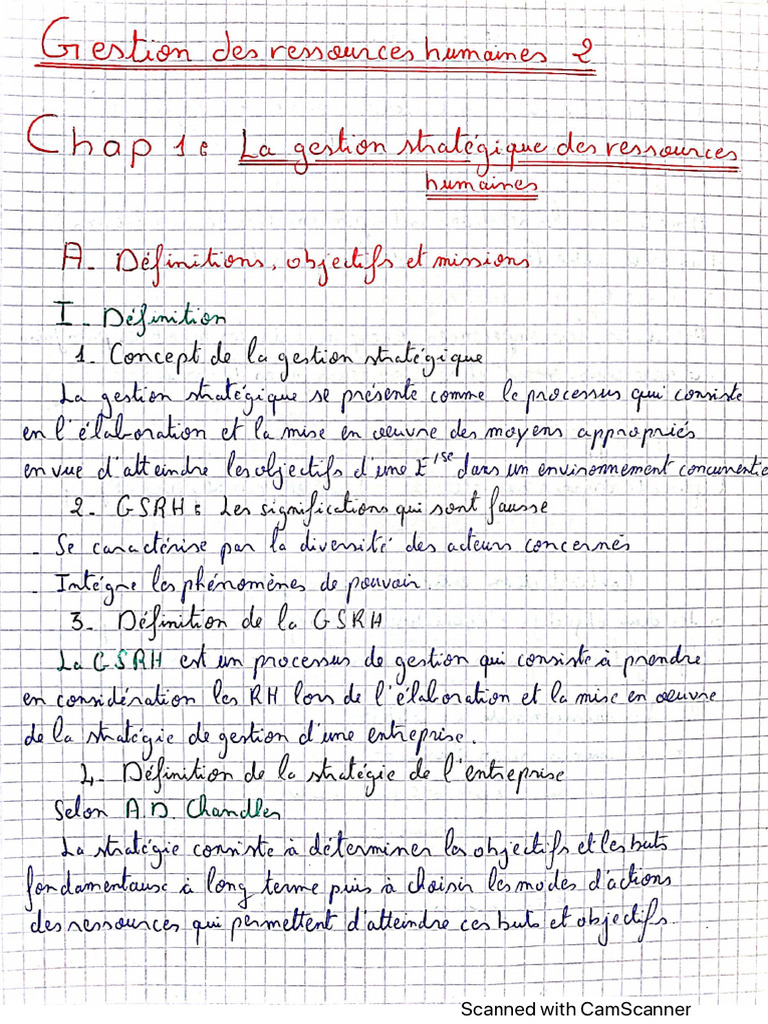 Gestion des ressources humaines 2
Chap 1 : La gestion stratégique des ressources
humaines
A. Définitions, objectifs et missions
I. Définition
1. Concept de la gestion stratégique
La gestion stratégique se présente comme le processus qui consiste
en l'élaboration et la mise en oeuvre des moyens appropriés
en vue d'atteindre les objectifs d'une E^se dans un environnement concurrentie
2. GSRH : Les significations qui sont fausse
- Se caractérise par la diversité des acteurs concernés
- Intégre les phénomènes de pouvoir.
3. Définition de la GSRH
La GSRH est un processus de gestion qui consiste à prendre
en considération les RH lors de l'élaboration et la mise en oeuvre
de la stratégie de gestion d'une entreprise.
4. Définition de la stratégie de l'entreprise
Selon A.D. Chandler
La stratégie consiste à déterminer les objectifs et les buts
fondamentaux à long terme puis à choisir les modes d'actions
des ressources qui permettent d'atteindre ces buts et objectifs.
Scanned with CamScanner